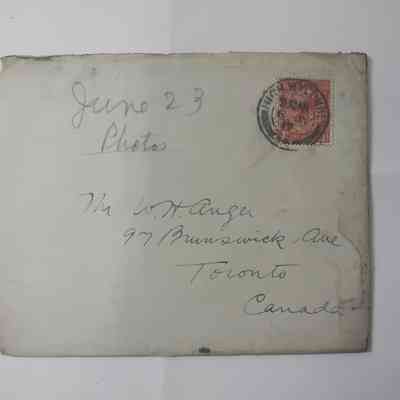 June 23
Photos
Mr W.H. Anger
97 Brunswick Ave
Toronto
Canada